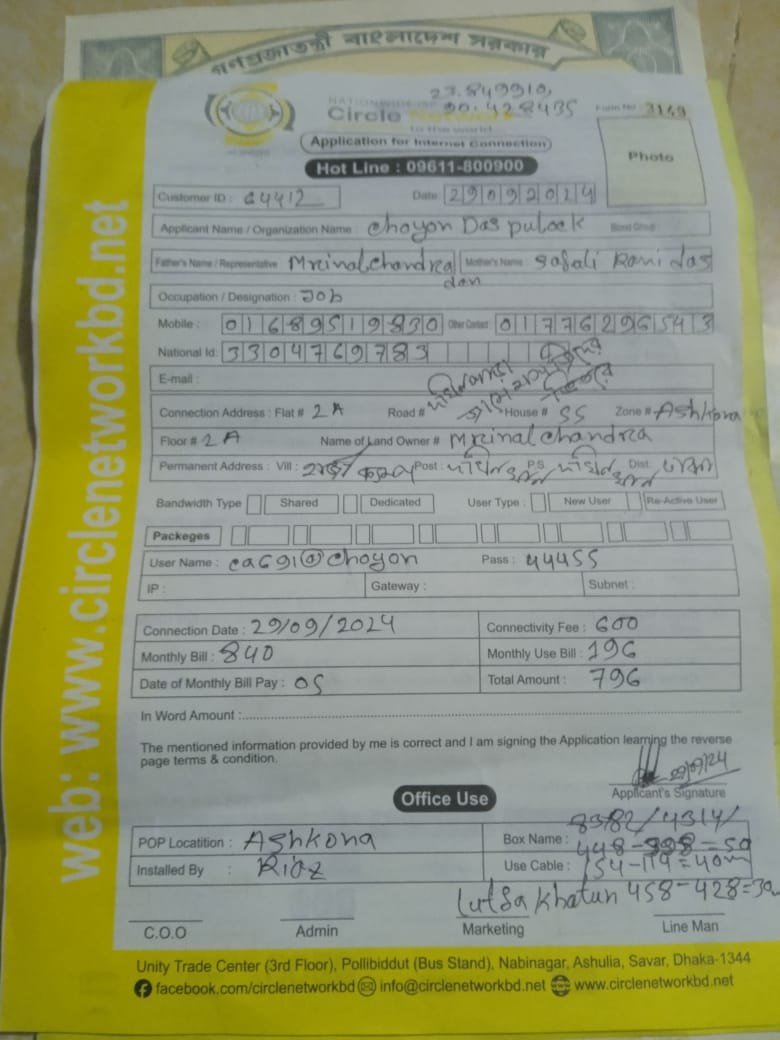 গণপ্রজাতন্ত্রী বাংলাদেশ সরকার
23.849910,
90.428435
Circle Network
to the world
Form No : 3149
Application for Internet Connection
Hot Line : 09611-800900
Photo
Customer ID : C4412
Date : 29092024
Applicant Name / Organization Name : Choyon Das pulock Blood Group :
Father's Name / Representative : Mrinal Chandra das Mother's Name : Safali Rani das
Occupation / Designation : Job
Mobile : 01689519830 Other Contact : 01776296543
National Id: 3304769783
E-mail :
Connection Address : Flat # 2A Road # House # 55 Zone # Ashkona
Floor # 2A Name of Land Owner # Mrinal Chandra
Permanent Address : Vill : Post : P.S. Dist: ঢাকা
Bandwidth Type Shared Dedicated User Type : New User Re-Active User
Packeges
User Name : ca691@choyon Pass : 44455
IP : Gateway : Subnet :
Connection Date : 29/09/2024 Connectivity Fee : 600
Monthly Bill : 840 Monthly Use Bill : 196
Date of Monthly Bill Pay : 05 Total Amount : 796
In Word Amount :
The mentioned information provided by me is correct and I am signing the Application learning the reverse
page terms & condition.
29/09/24
Applicant's Signature
Office Use
8382/4314/
POP Locatition : Ashkona Box Name : 448-398=50
Installed By : Riaz Use Cable : 154-114=40m
Lutfa Khatun 458-428=30m
C.O.O Admin Marketing Line Man
Unity Trade Center (3rd Floor), Pollibiddut (Bus Stand), Nabinagar, Ashulia, Savar, Dhaka-1344
facebook.com/circlenetworkbd info@circlenetworkbd.net www.circlenetworkbd.net
web: www.circlenetworkbd.net